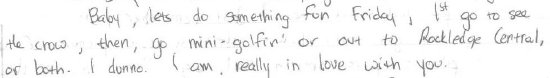 Baby, lets do something fun Friday, 1st go to see
the crow, then, go mini-golfin' or out to Rockledge Central,
or both. I dunno. I am really in love with you.